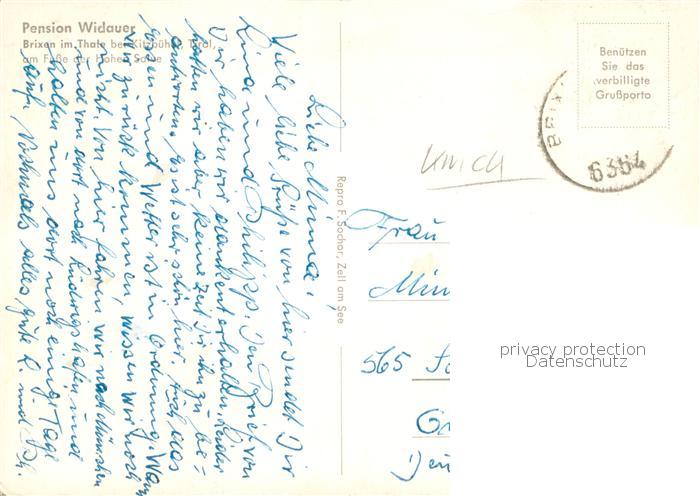 Pension Widauer
Brixen im Thale bei Kitzbühel, Tirol,
am Fuße der Hohen Salve
Liebe Minna!
Viele liebe Grüße von hier sendet Dir
Lina und Philipp. Den Brief von
Dir haben wir dankend erhalten. Leider
hatten wir aber keine Zeit Dir ihn zu be-
antworten. Es ist sehr schön hier. Auch das
Essen und Wetter ist in Ordnung. Wann
wir zurück kommen, wissen wir noch
nicht. Von hier fahren wir nach München
und von dort nach und
halten uns dort noch einige Tage
auf. Nochmals alles gute L. und Ph.
Repro F. Sochor, Zell am See
Benützen
Sie das
verbilligte
Grußporto
6364
Frau
565
privacy protection
Datenschutz